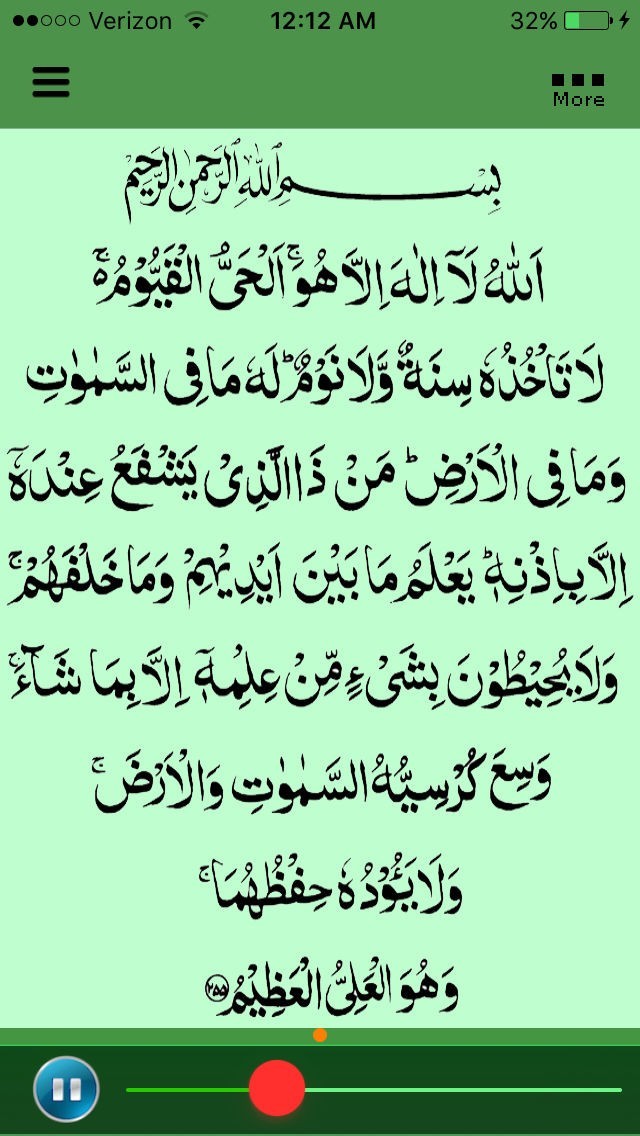 Verizon 12:12 AM 32%
More
بِسْمِ اللهِ الرَّحْمٰنِ الرَّحِيْمِ
اَللّٰهُ لَآ اِلٰهَ اِلَّا هُوَ ۚ اَلْحَىُّ الْقَيُّوْمُ ەۚ
لَا تَاْخُذُهٗ سِنَةٌ وَّلَا نَوْمٌ ؕ لَهٗ مَا فِى السَّمٰوٰتِ
وَمَا فِى الْاَرْضِ ؕ مَنْ ذَا الَّذِىْ يَشْفَعُ عِنْدَهٗۤ
اِلَّا بِاِذْنِهٖ ؕ يَعْلَمُ مَا بَيْنَ اَيْدِيْهِمْ وَمَا خَلْفَهُمْ ۚ
وَلَا يُحِيْطُوْنَ بِشَىْءٍ مِّنْ عِلْمِهٖۤ اِلَّا بِمَا شَآءَ ۚ
وَسِعَ كُرْسِيُّهُ السَّمٰوٰتِ وَالْاَرْضَ ۚ
وَلَا يَـُٔوْدُهٗ حِفْظُهُمَا ۚ
وَهُوَ الْعَلِىُّ الْعَظِيْمُ ﴿۲۵۵﴾